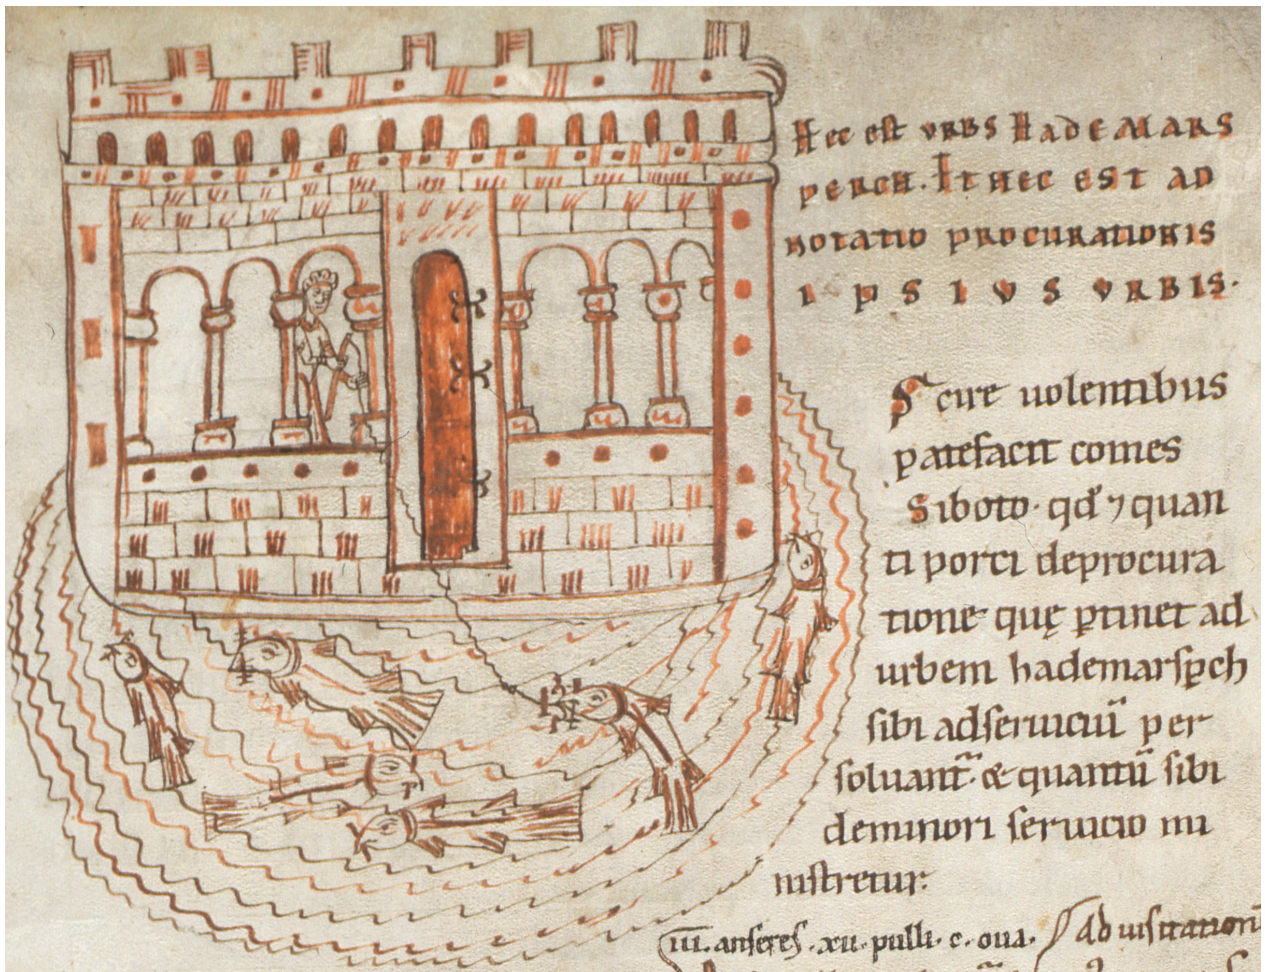 Hec est urbs Hademars
perch. Et hec est ad
notatio procurationis
ipsius urbis.
Scire uolentibus
patefacit comes
Siboto. qđ ⁊ quan
ti porci deprocura
tione quę ꝑtinet ad
urbem hademarsꝑch
sibi adseruiciū per
soluant̄. & quantū sibi
deminori seruicio mi
nistretur.
iiii. anseres. xii. pulli. c. oua. Ad uisitationē